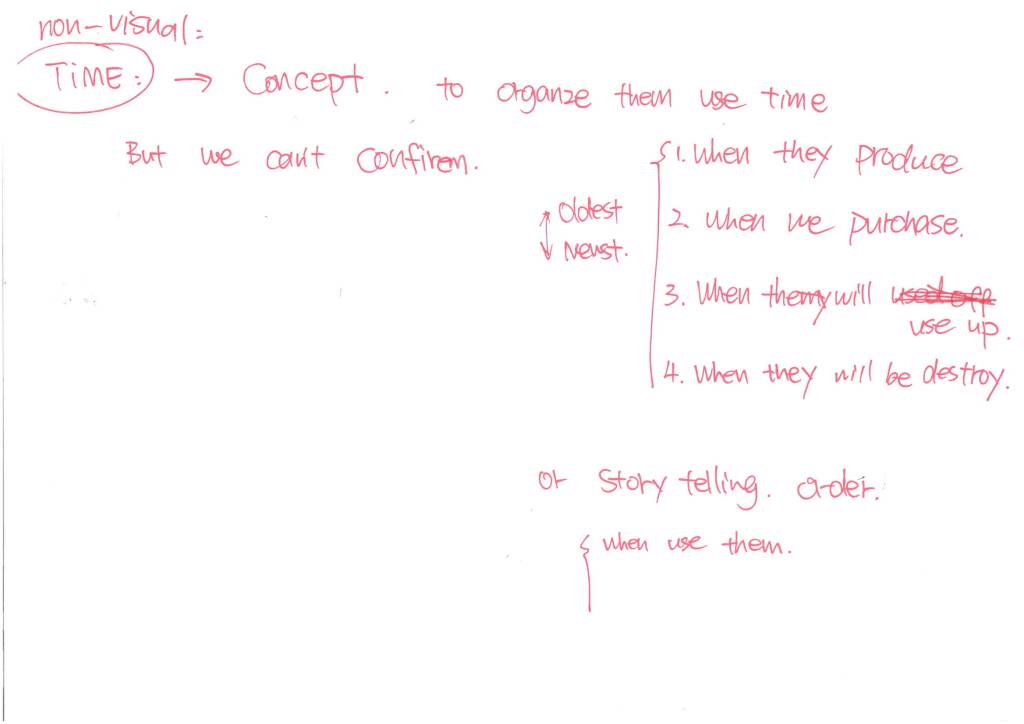 non-visual:
TIME: → Concept. to organze them use time
But we can't confirem.
1. When they produce
oldest
2. when we purchase.
newst.
3. When themy will used off
use up.
4. When they will be destroy.
or story telling. order.
when use them.